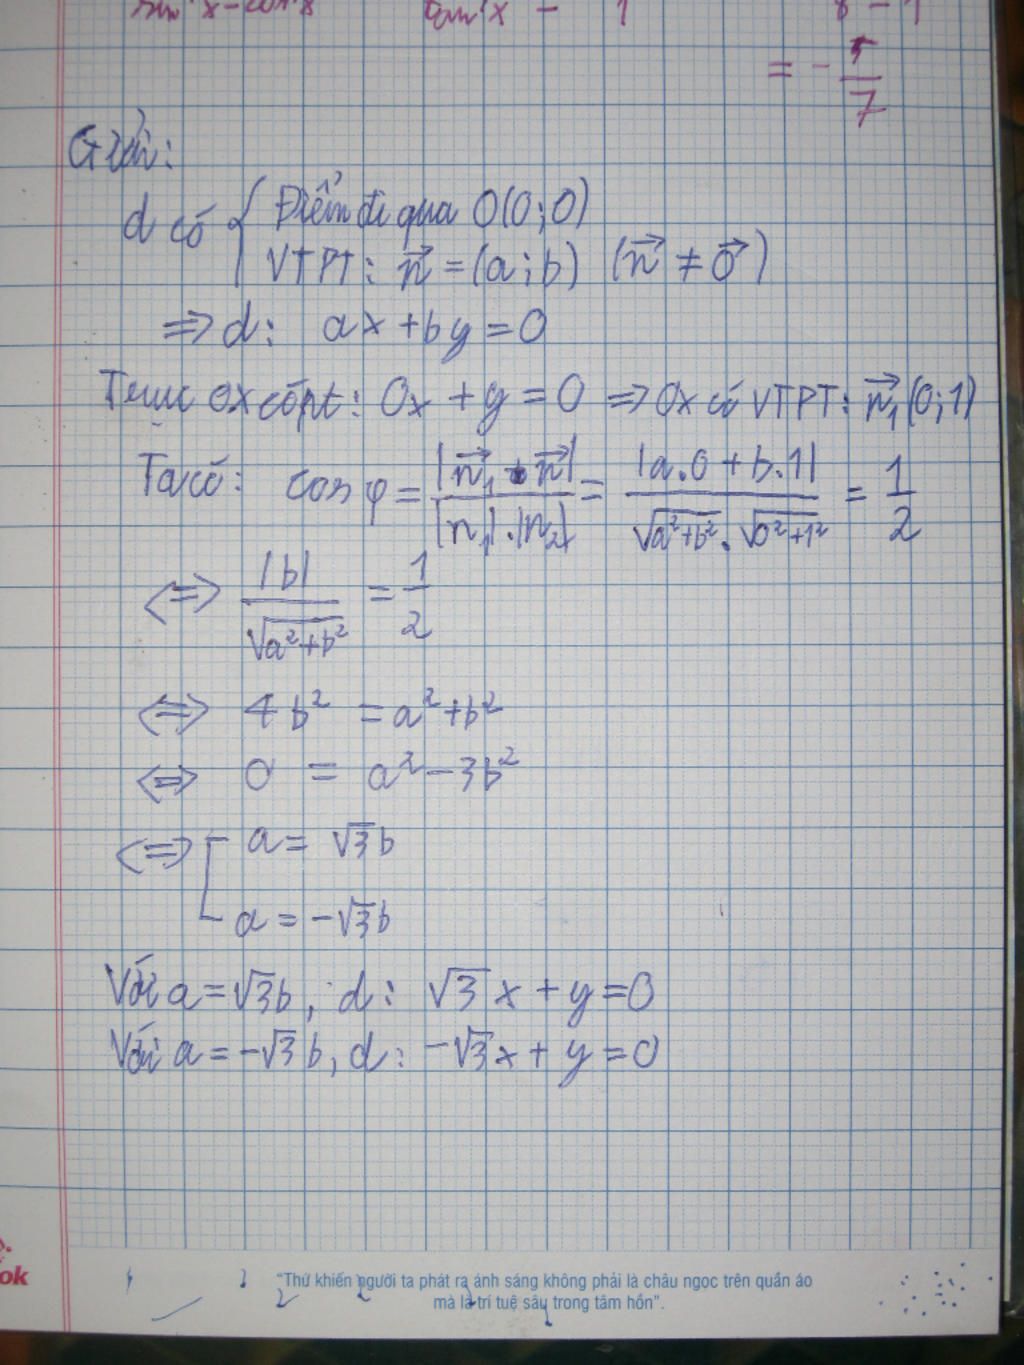 tan⁴x - 1
8 - 1
= - 5/7
Giải:
d có { Điểm đi qua O(0;0)
VTPT: n⃗ = (a;b) (n⃗ ≠ 0⃗)
=> d: ax + by = 0
Trục ox có pt: 0x + y = 0 => Ox có VTPT: n⃗₁(0;1)
Ta có: cos φ = |n⃗₁ . n⃗| / |n₁|.|n₂| = |a.0 + b.1| / √(a²+b²) . √(0²+1²) = 1/2
<=> |b| / √(a²+b²) = 1/2
<=> 4b² = a²+b²
<=> 0 = a² - 3b²
<=> [ a = √3b
a = -√3b
Với a = √3b, d: √3x + y = 0
Với a = -√3b, d: -√3x + y = 0
ok
"Thứ khiến người ta phát ra ánh sáng không phải là châu ngọc trên quần áo
mà là trí tuệ sâu trong tâm hồn".